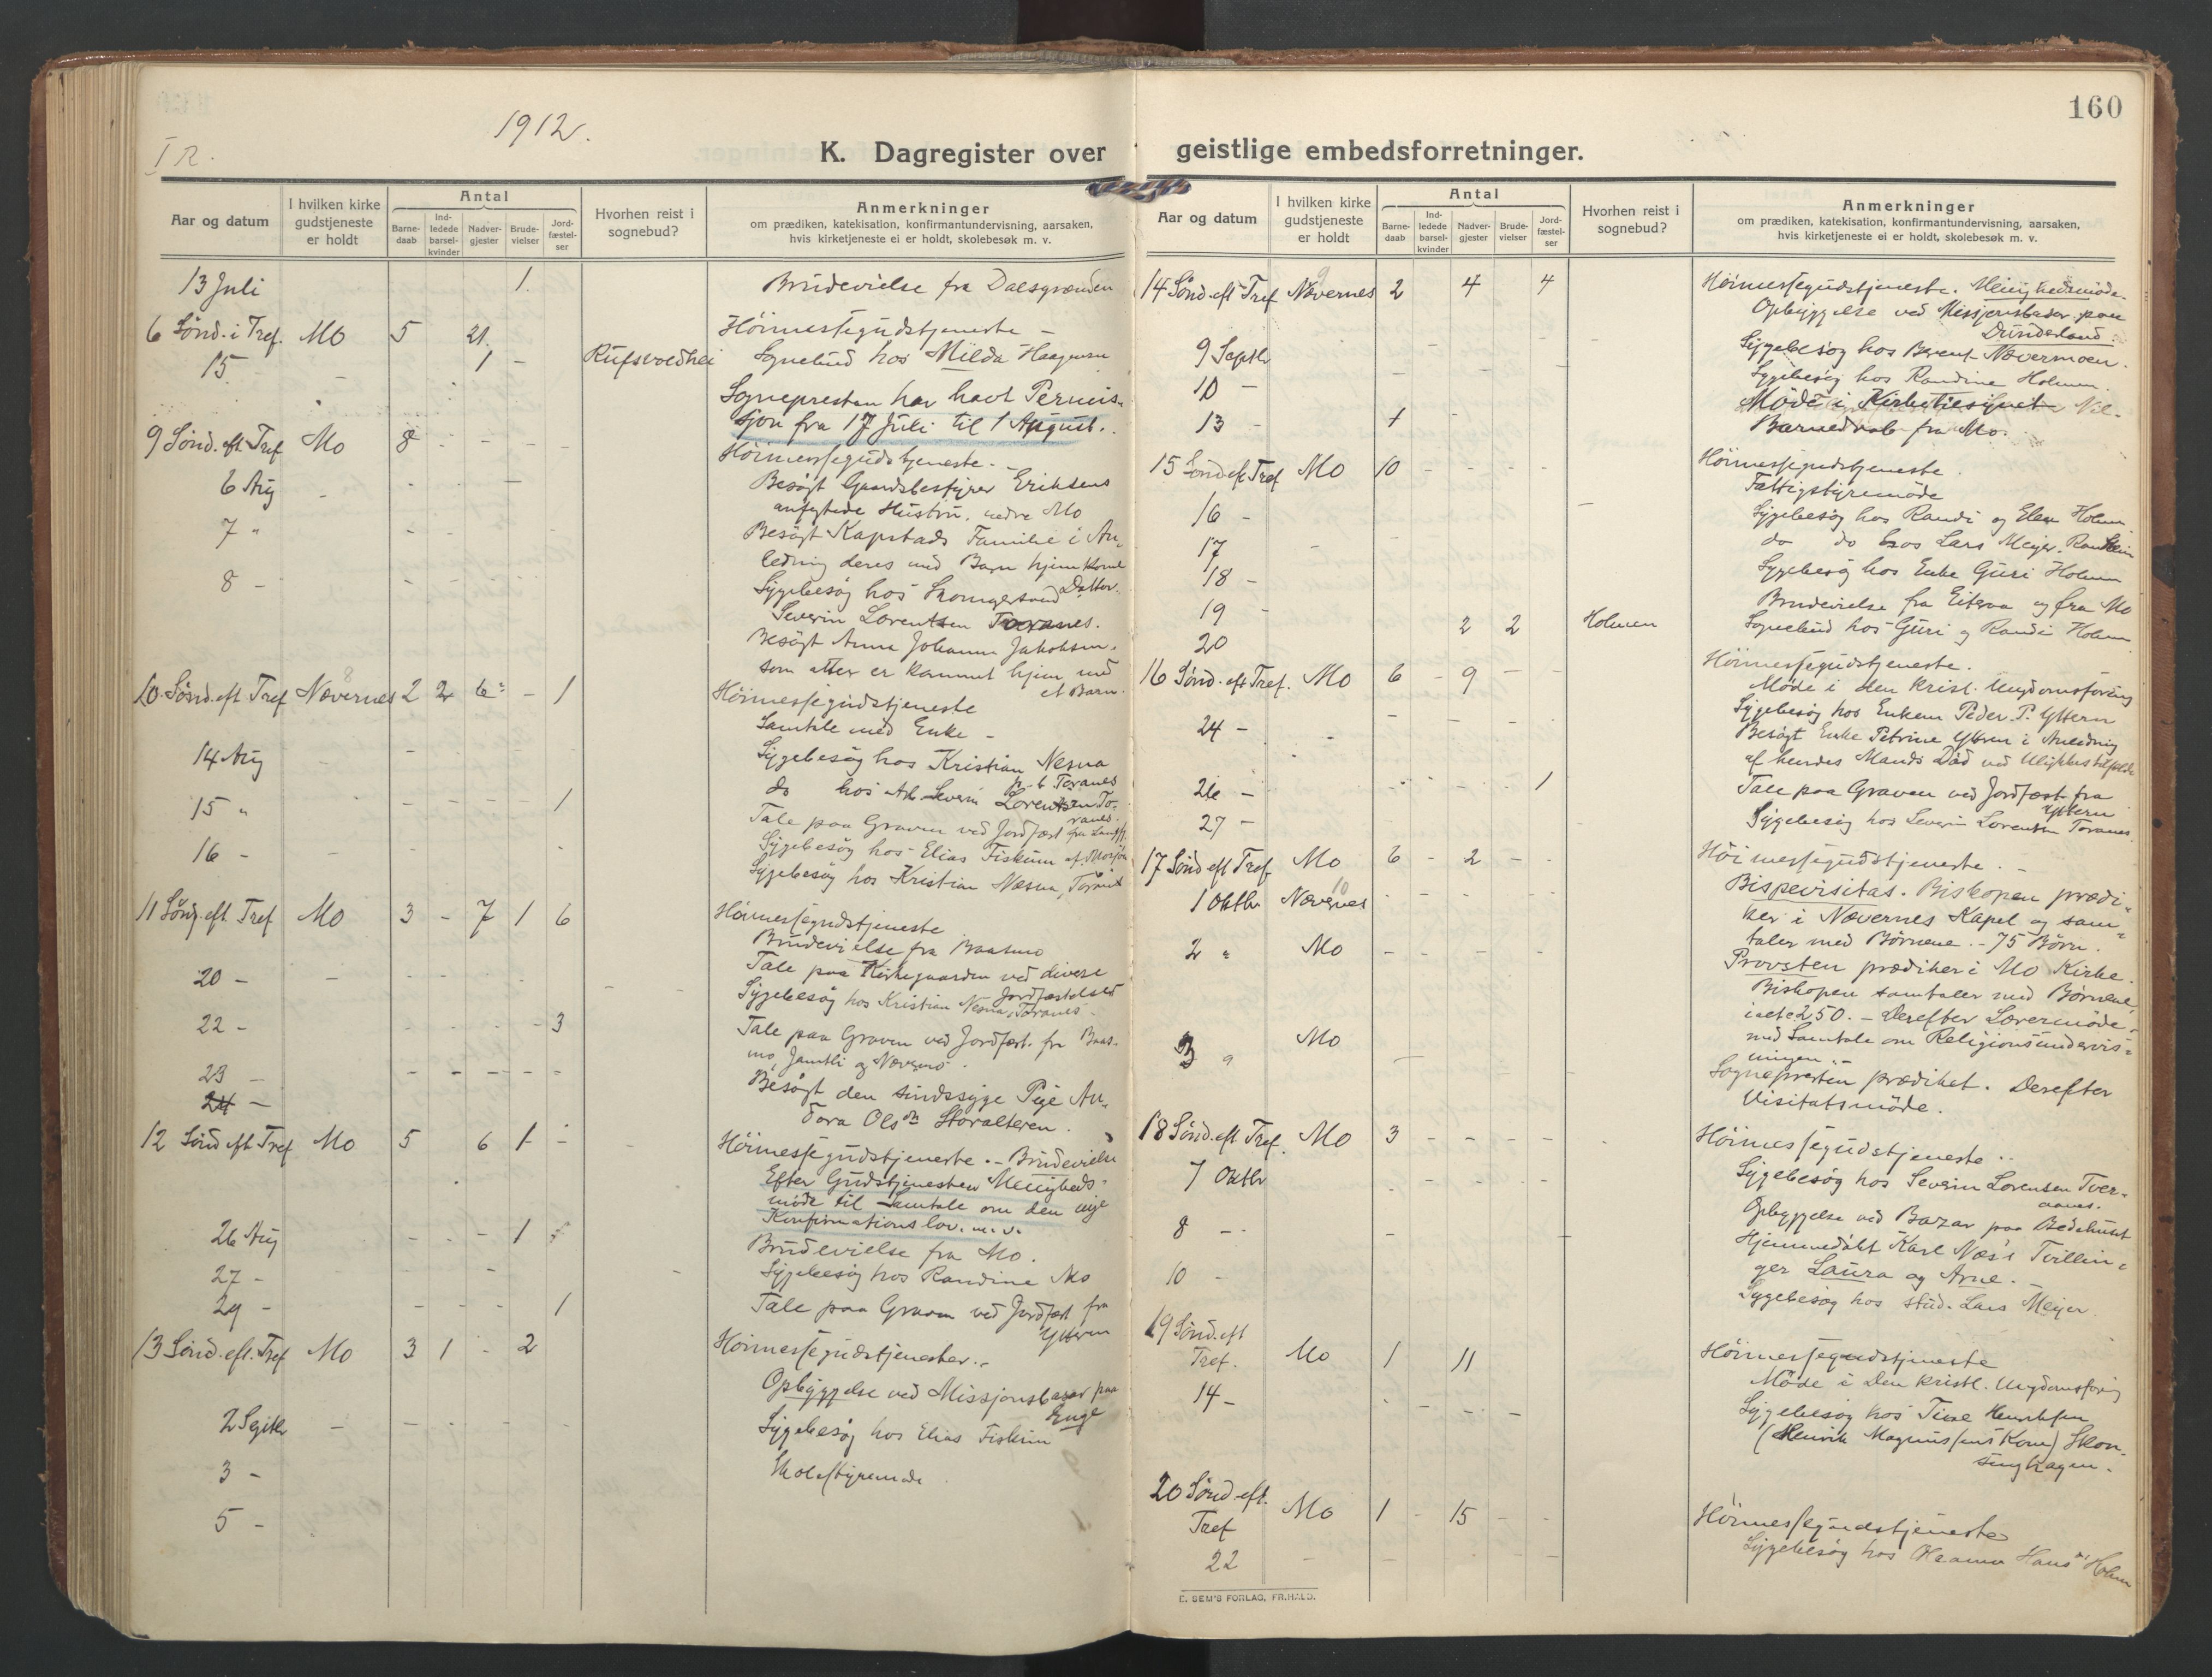 1912.
I R.
K. Dagregister over
Aar og datum
I hvilken kirke gudstjeneste er holdt
Antal
Barne-daab
Ind-ledede barsel-kvinder
Nadver-gjester
Brude-vielser
Jord-fæstel-ser
Hvorhen reist i sognebud?
Anmerkninger
om prædiken, katekisation, konfirmantundervisning, aarsaken, hvis kirketjeneste ei er holdt, skolebesøk m. v.
13 Juli 1. Brudevielse fra Dalsgrænden
6 Sönd. i Tref. Mo 5 21. Höimessegudstjeneste -
15 - 1 - Rufsvoldhei Sognebud hos Milda Haagensen
Sognepresten har havt Permis-
sjon fra 17 Juli til 1 August.
9 Sönd. eft Tref Mo 8 - - - Höimessegudstjeneste. -
6 Aug Besögt Gaardsbestyrer Eriksens
anfegtede Hustru, nedre Mo
7 " Besögt Kapstads Familie i An-
ledning deres med Barn hjemkomne Datter.
8 - Sygebesög hos
Severin Lorentsen Toranes.
Besögt Anna Johanna Jakobsen,
som atter er kommet hjem med
et Barn.
10. Sönd. eft Tref Nævernes 8 2 2 6 - 1 Höimessegudstjeneste
Samtale med Enke -
14 Aug Sygebesög hos Kristian Nesna
p. t Toranes
15 " 1 do hos Severin Lorentzen To-
ranes.
Tale paa Graven ved Jordfæst fra
16 - Sygebesög hos Elias Fiskum af Mosjön
Sygebesög hos Kristian Nesna, Toranes
11 Sönd. eft. Tref Mo 3 - 7 1 6 Höimessegudstjeneste
Brudevielse fra Baasmo
Tale paa Kirkegaarden ved diverse
Jordfæstelser
20 - Sygebesög hos Kristian Nesna, Toranes -
22 - 3 Tale paa Graven ved Jordfæst. fra Baas-
mo, Jamtli og Nævernes.
23 - Besögt den sindssyge Pige An-
24 - dora Olsdn Storalteren.
12 Sönd eft Tref Mo 5 6 1 - Höimessegudstjeneste. - Brudevielse
Efter Gudstjenesten Menigheds-
möde til Samtale om den nye
Konfirmationslov. m. v.
26 Aug 1 Brudevielse fra Mo.
27 - Sygebesög hos Randine Mo
29 - 1 Tale paa Graven ved Jordfæst fra
Ytteren
13 Sönd. eft. Tref Mo 3 1 - 2 Höimessegudstjenester. -
Opbyggelse ved Missjonsbasar paa
Enge
2 Septbr - Sygebesög hos Elias Fiskum
3 - Skolestyremöde
5 -
160
geistlige embedsforretninger.
Aar og datum
I hvilken kirke gudstjeneste er holdt
Antal
Barne-daab
Ind-ledede barsel-kvinder
Nadver-gjester
Brude-vielser
Jord-fæstel-ser
Hvorhen reist i sognebud?
Anmerkninger
om prædiken, katekisation, konfirmantundervisning, aarsaken, hvis kirketjeneste ei er holdt, skolebesøk m. v.
14 Sönd. eft Tref Nævernes 9 2 4 4 Höimessegudstjeneste. Menighedsmöde.
Opbyggelse ved Missjonsbasar paa
Dunderland.
9 Septbr Sygebesög hos Bernt Nævermoen.
10 - Sygebesög hos Randine Holmen.
Möde i Kirketilsynet
13 - 1 Barnedaab fra Mo.
15 Sönd eft Tref Mo 10 - - - Höimessegudstjeneste.
Fattigstyremöde
16 - Sygebesög hos Randi og Elen Holmen
17 do do hos Lars Meijer
18 - Sygebesög hos Enke Guri Holmen
19 - Brudevielse fra Eiteraa og fra Mo
20 2 2 Holmen Sognebud hos Guri og Randi Holmen
16 Sönd. eft Tref. Mo 6 - 9 - - Höimessegudstjeneste.
Möde i den kristl. Ungdomsforening
24 - Sygebesög hos Enkem Peder P. Ytteren
Besögt Enke Petrine Ytteren i Anledning
af hendes Mands Död ved Ulykkestilfælde
26 - 1 Tale paa Graven ved Jordfæst. fra
Ytteren
27 - Sygebesög hos Severin Lorentsen Toranes
17 Sönd eft Tref. Mo 6 - 2 - - Höimessegudstjeneste. -
1 Oktbr Nævernes 10 Bispevisitas. Biskopen prædi-
ker i Nævernes Kapel og sam-
taler med Börnene. - 75 Börn.
2 " Mo Provsten prædiker i Mo Kirke.
Biskopen samtaler med Börnene
i alt c 250. - Derefter Lærermöde
med Samtale om Religionsundervis-
ningen. -
3 " Mo Sognepresten prædiket. Derefter
Visitatsmöde.
18 Sönd. eft Tref. Mo 3 - - - - Höimessegudstjeneste.
7 Oktbr Sygebesög hos Severin Lorensen Tver-
aanes.
8 - Opbyggelse ved Bazar paa Bedehuset
Hjemmedöbt Karl Næs's Tvillin-
10 - ger Laura og Arne. -
Sygebesög hos stud. Lars Meijer.
19 Sönd. eft
Tref. Mo 1 11 Höimessegudstjeneste
Möde i Den kristl. Ungdomsforeng
14 - Sygebesög hos Henriksen
(Henrik Magnussens Kone) Skon-
senghagen.
20 Sönd. eft.
Tref Mo 1 - 15 - - Höimessegudstjeneste
22 Sygebesög hos Hans Holmen
E. SEM'S FORLAG, FR.HALD.